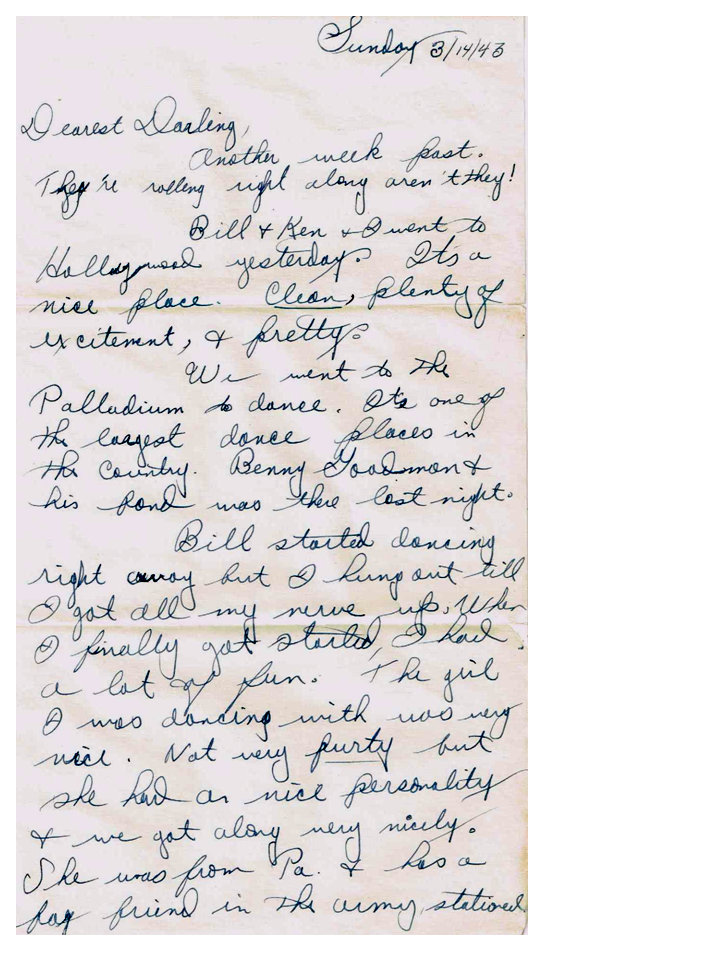 Sunday 3/14/43
Dearest Darling,
Another week past.
They're rolling right along aren't they!
Bill & Ken & I went to
Hollaywood yesterday. Its a
nice place. Clean, plenty of
excitement, & pretty.
We went to the
Palladium to dance. It's one of
the largest dance places in
the Country. Benny Goodman &
his band was there last night.
Bill started dancing
right away but I hung out till
I got all my nerve up. When
I finally got started, I had
a lot of fun. The girl
I was dancing with was very
nice. Not very purty but
she had a nice personality
& we got along very nicely.
She was from Pa. & has a
boy friend in the army, stationed